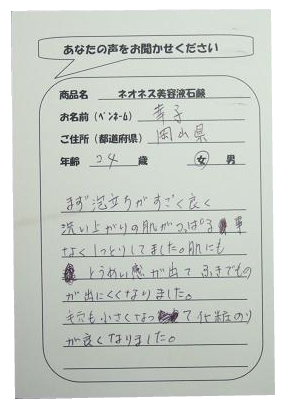 あなたの声をお聞かせください
商品名 ネオネス美容液石鹸
お名前(ペンネーム) 幸子
ご住所(都道府県) 岡山県
年齢 24 歳 女 男
まず泡立ちがすごく良く
洗い上がりの肌がつっぱる事
なくしっとりしてました。肌にも
とうめい感が出て ふきでもの
が出にくくなりました。
毛穴も小さくなって化粧のり
が良くなりました。